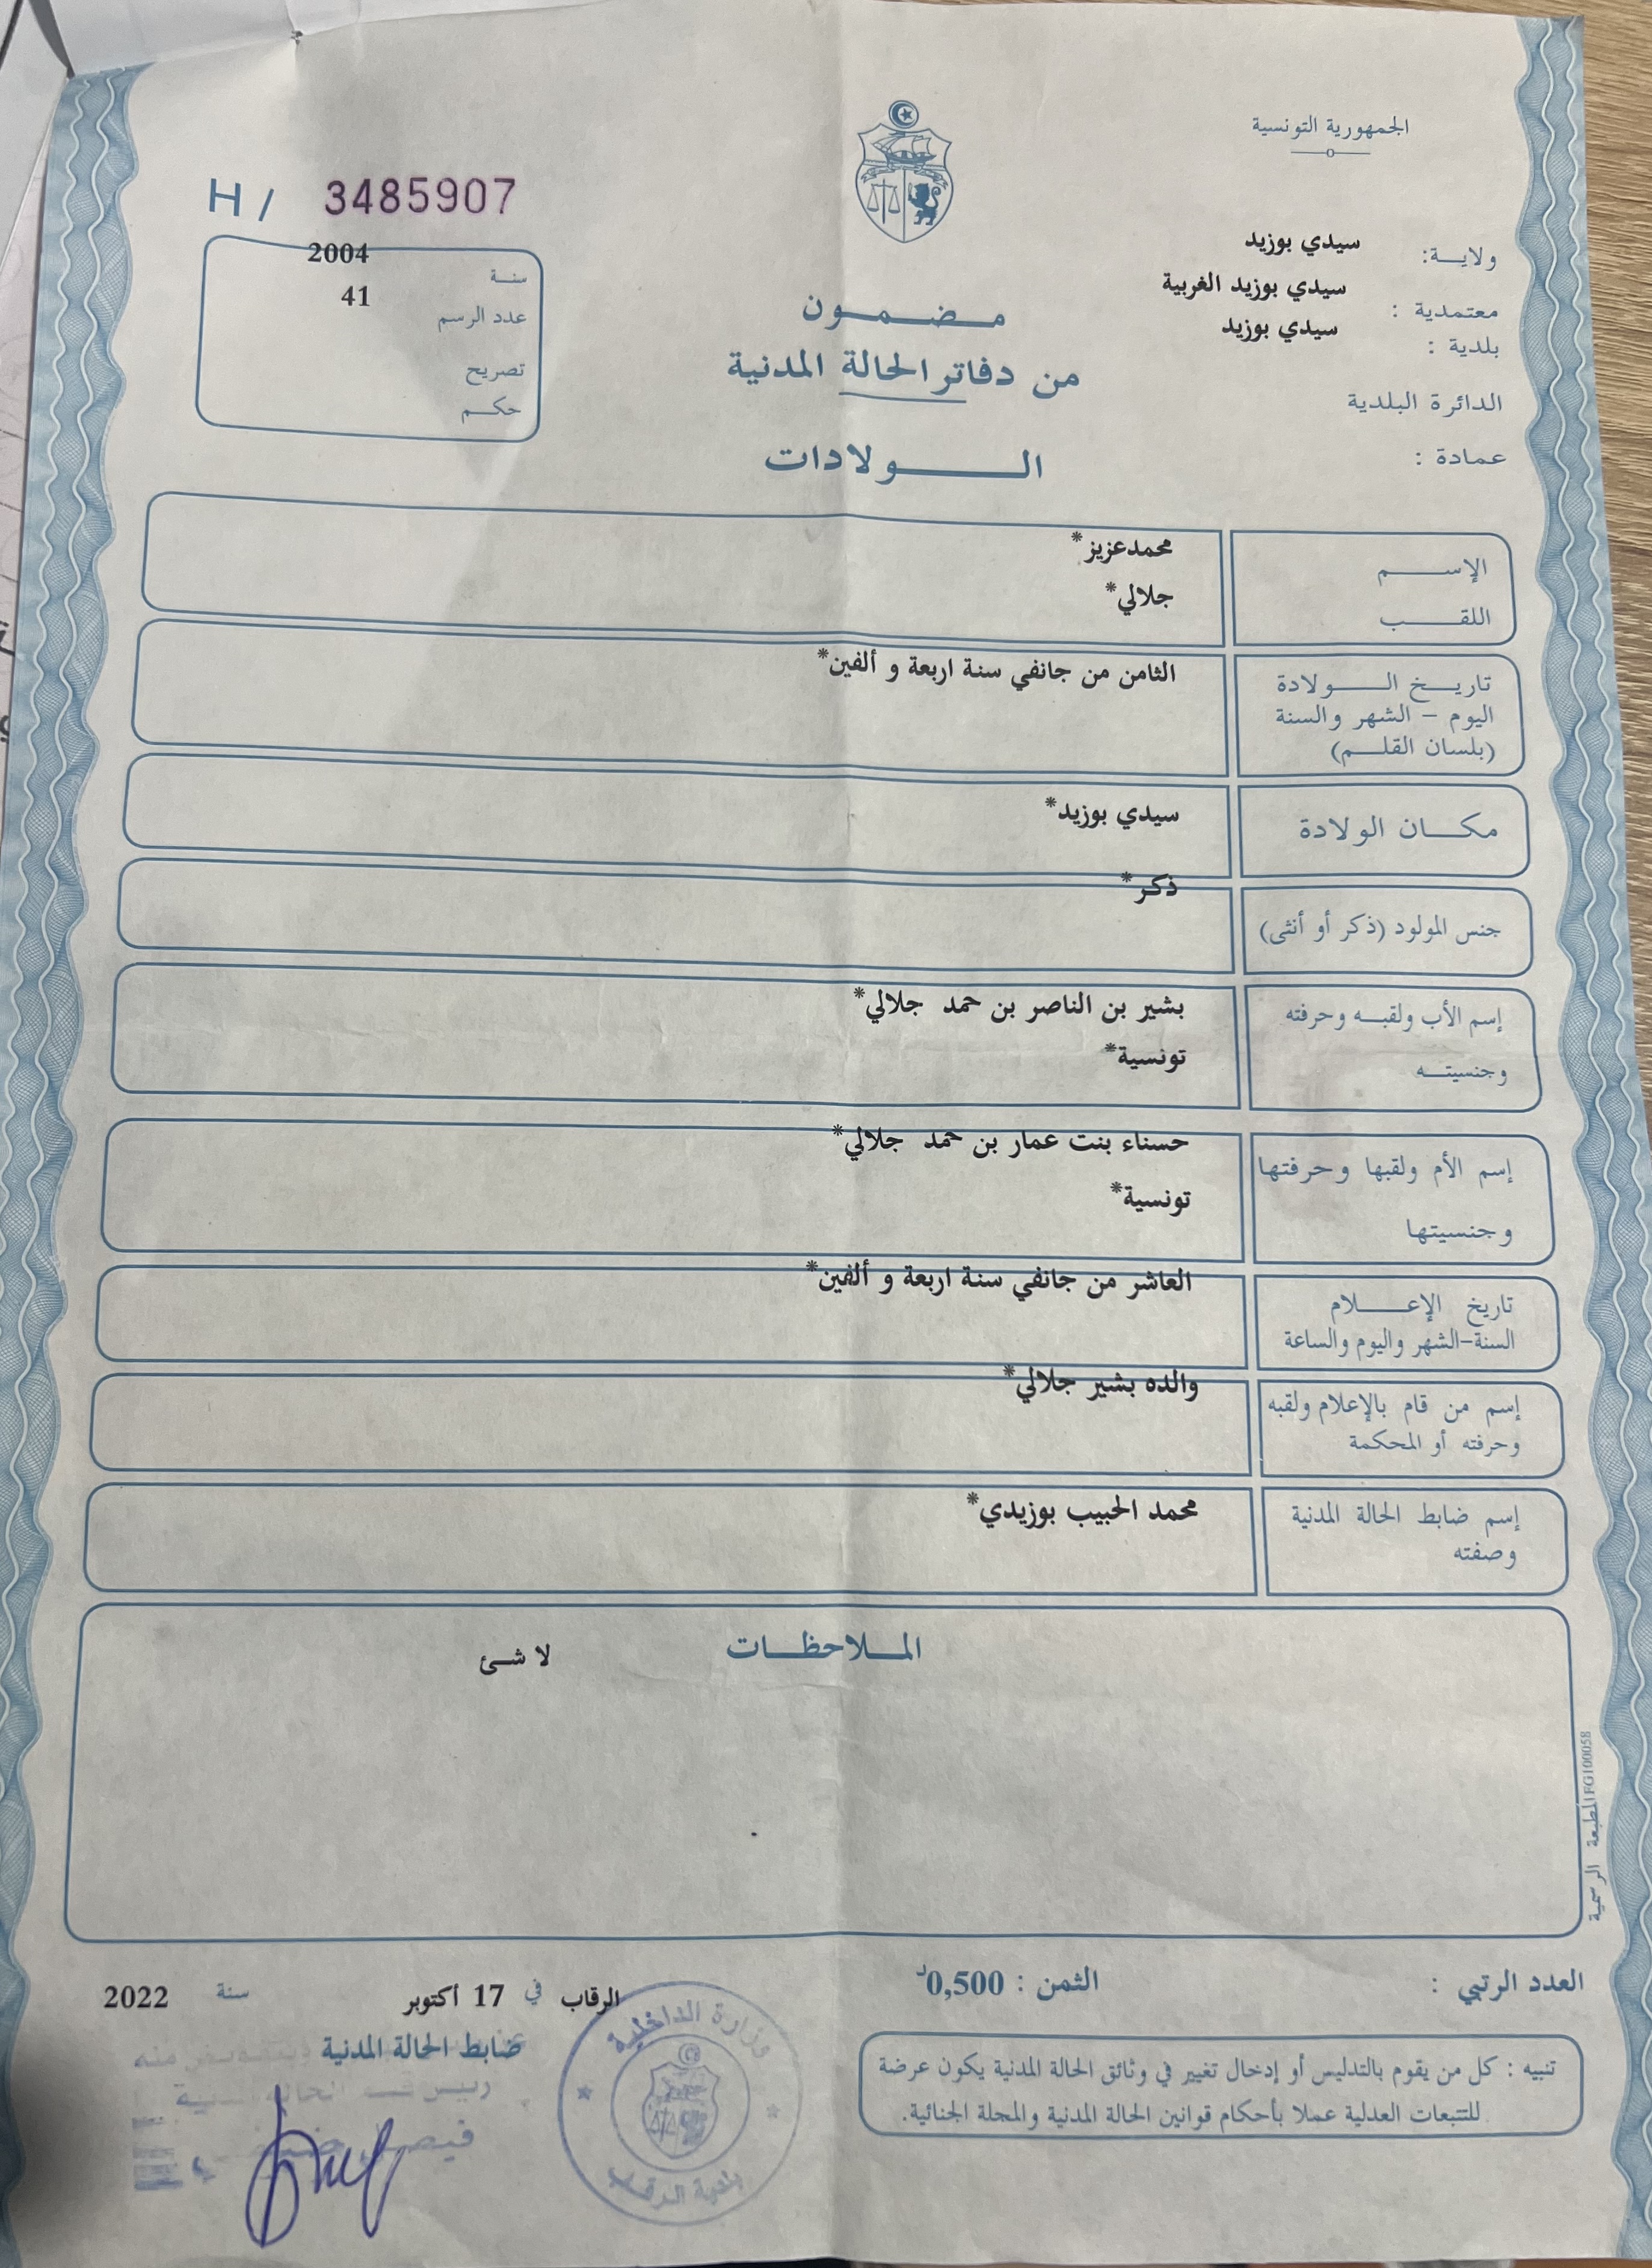 الجمهورية التونسية
H / 3485907
ولاية: سيدي بوزيد
معتمدية : سيدي بوزيد الغربية
بلدية : سيدي بوزيد
الدائرة البلدية
عمادة :
سنة 2004
عدد الرسم 41
تصريح
حكم
مضمون
من دفاتر الحالة المدنية
الولادات
الإسم محمدعزيز*
اللقب جلالي*
تاريخ الولادة الثامن من جانفي سنة اربعة و ألفين*
اليوم - الشهر والسنة
(بلسان القلم)
مكان الولادة سيدي بوزيد*
جنس المولود (ذكر أو أنثى) ذكر*
إسم الأب ولقبه وحرفته بشير بن الناصر بن حمد جلالي*
وجنسيته تونسية*
إسم الأم ولقبها وحرفتها حسناء بنت عمار بن حمد جلالي*
وجنسيتها تونسية*
تاريخ الإعلام العاشر من جانفي سنة اربعة و ألفين*
السنة-الشهر واليوم والساعة
إسم من قام بالإعلام ولقبه والده بشير جلالي*
وحرفته أو المحكمة
إسم ضابط الحالة المدنية محمد الحبيب بوزيدي*
وصفته
الملاحظات
لا شئ
المطبعة الرسمية FG100058
العدد الرتبي :
الثمن : 0,500د
الرقاب في 17 أكتوبر سنة 2022
ضابط الحالة المدنية
تنبيه : كل من يقوم بالتدليس أو إدخال تغيير في وثائق الحالة المدنية يكون عرضة
للتتبعات العدلية عملا بأحكام قوانين الحالة المدنية والمجلة الجنائية.
وزارة الداخلية
بلدية الرقاب